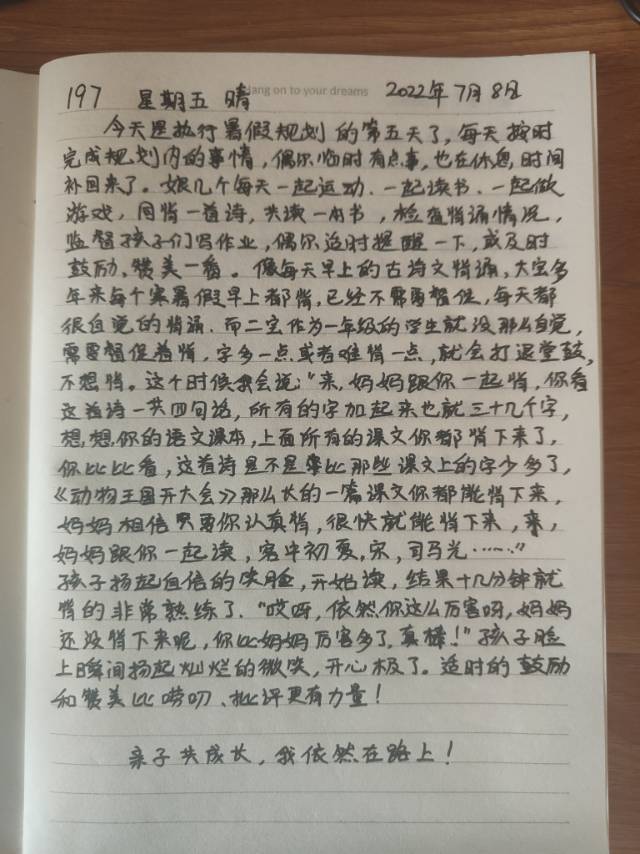 197 星期五 晴 Hang on to your dreams 2022年7月8日
今天是执行暑假规划的第五天了，每天按时
完成规划内的事情，偶尔临时有点事，也在休息时间
补回来了。娘几个每天一起运动、一起读书、一起做
游戏，同背一首诗，共读一本书，检查背诵情况，
监督孩子们写作业，偶尔适时提醒一下，或及时
鼓励，赞美一番。像每天早上的古诗文背诵，大宝多
年来每个寒暑假早上都背，已经不需要督促，每天都
很自觉的背诵。而二宝作为一年级的学生就没那么自觉，
需要督促着背，字多一点或者难背一点，就会打退堂鼓，
不想背。这个时候我会说："来，妈妈跟你一起背，你看
这首诗一共四句话，所有的字加起来也就三十几个字，
想，想你的语文课本，上面所有的课文你都背下来了，
你比比看，这首诗是不是要比那些课文上的字少多了，
《动物王国开大会》那么长的一篇课文你都能背下来，
妈妈相信只要你认真背，很快就能背下来，来，
妈妈跟你一起读，客中初夏，宋，司马光……"
孩子扬起自信的笑脸，开始读，结果十几分钟就
背的非常熟练了。"哎呀，依然你这么厉害呀，妈妈
还没背下来呢，你比妈妈厉害多了，真棒！"孩子脸
上瞬间扬起灿烂的微笑，开心极了。适时的鼓励
和赞美比唠叨、批评更有力量！
亲子共成长，我依然在路上！